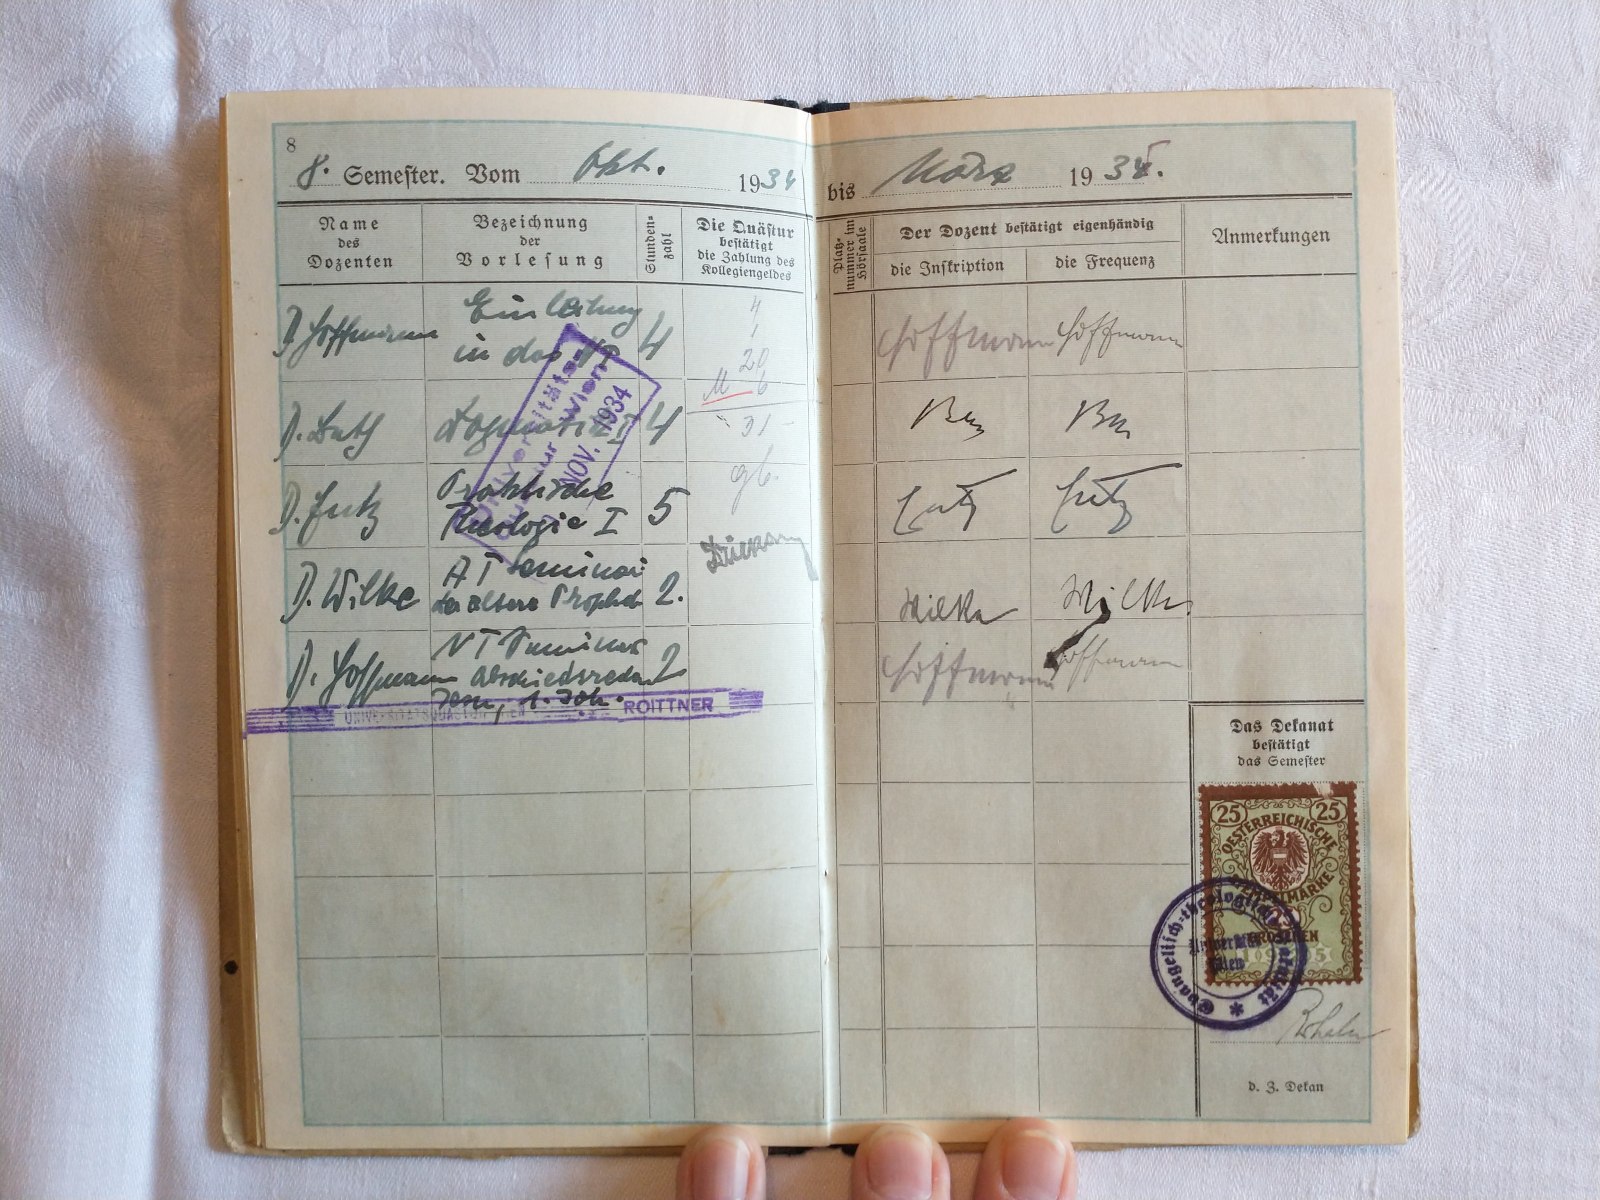 8
8. Semester. Vom Okt. 1934
bis März 1935.
Name
des
Dozenten
Bezeichnung
der
Vorlesung
Stunden-
zahl
Die Quästur
bestätigt
die Zahlung des
Kollegiengeldes
Platz-
nummer im
Hörsaale
Der Dozent bestätigt eigenhändig
die Inskription
die Frequenz
Anmerkungen
D. Hoffmann
Einleitung
in das NT
4
4
1
20
6
31
Hoffmann
Hoffmann
Dogmatik I
4
D. Entz
Praktische
Theologie I
5
Entz
Entz
D. Wilke
AT Seminar
2.
Wilke
Wilke
D. Hoffmann
NT Seminar
Abschiedsreden
Jesu, 1. Joh.
2
Hoffmann
Hoffmann
Universitäts-
Wien
NOV. 1934
UNIVERSITÄTSQUÄSTUR WIEN
ROITTNER
Das Dekanat
bestätigt
das Semester
25
25
OESTERREICHISCHE
STEMPELMARKE
GROSCHEN
Evangelisch-theologische Fakultät
Universität
Wien
d. Z. Dekan